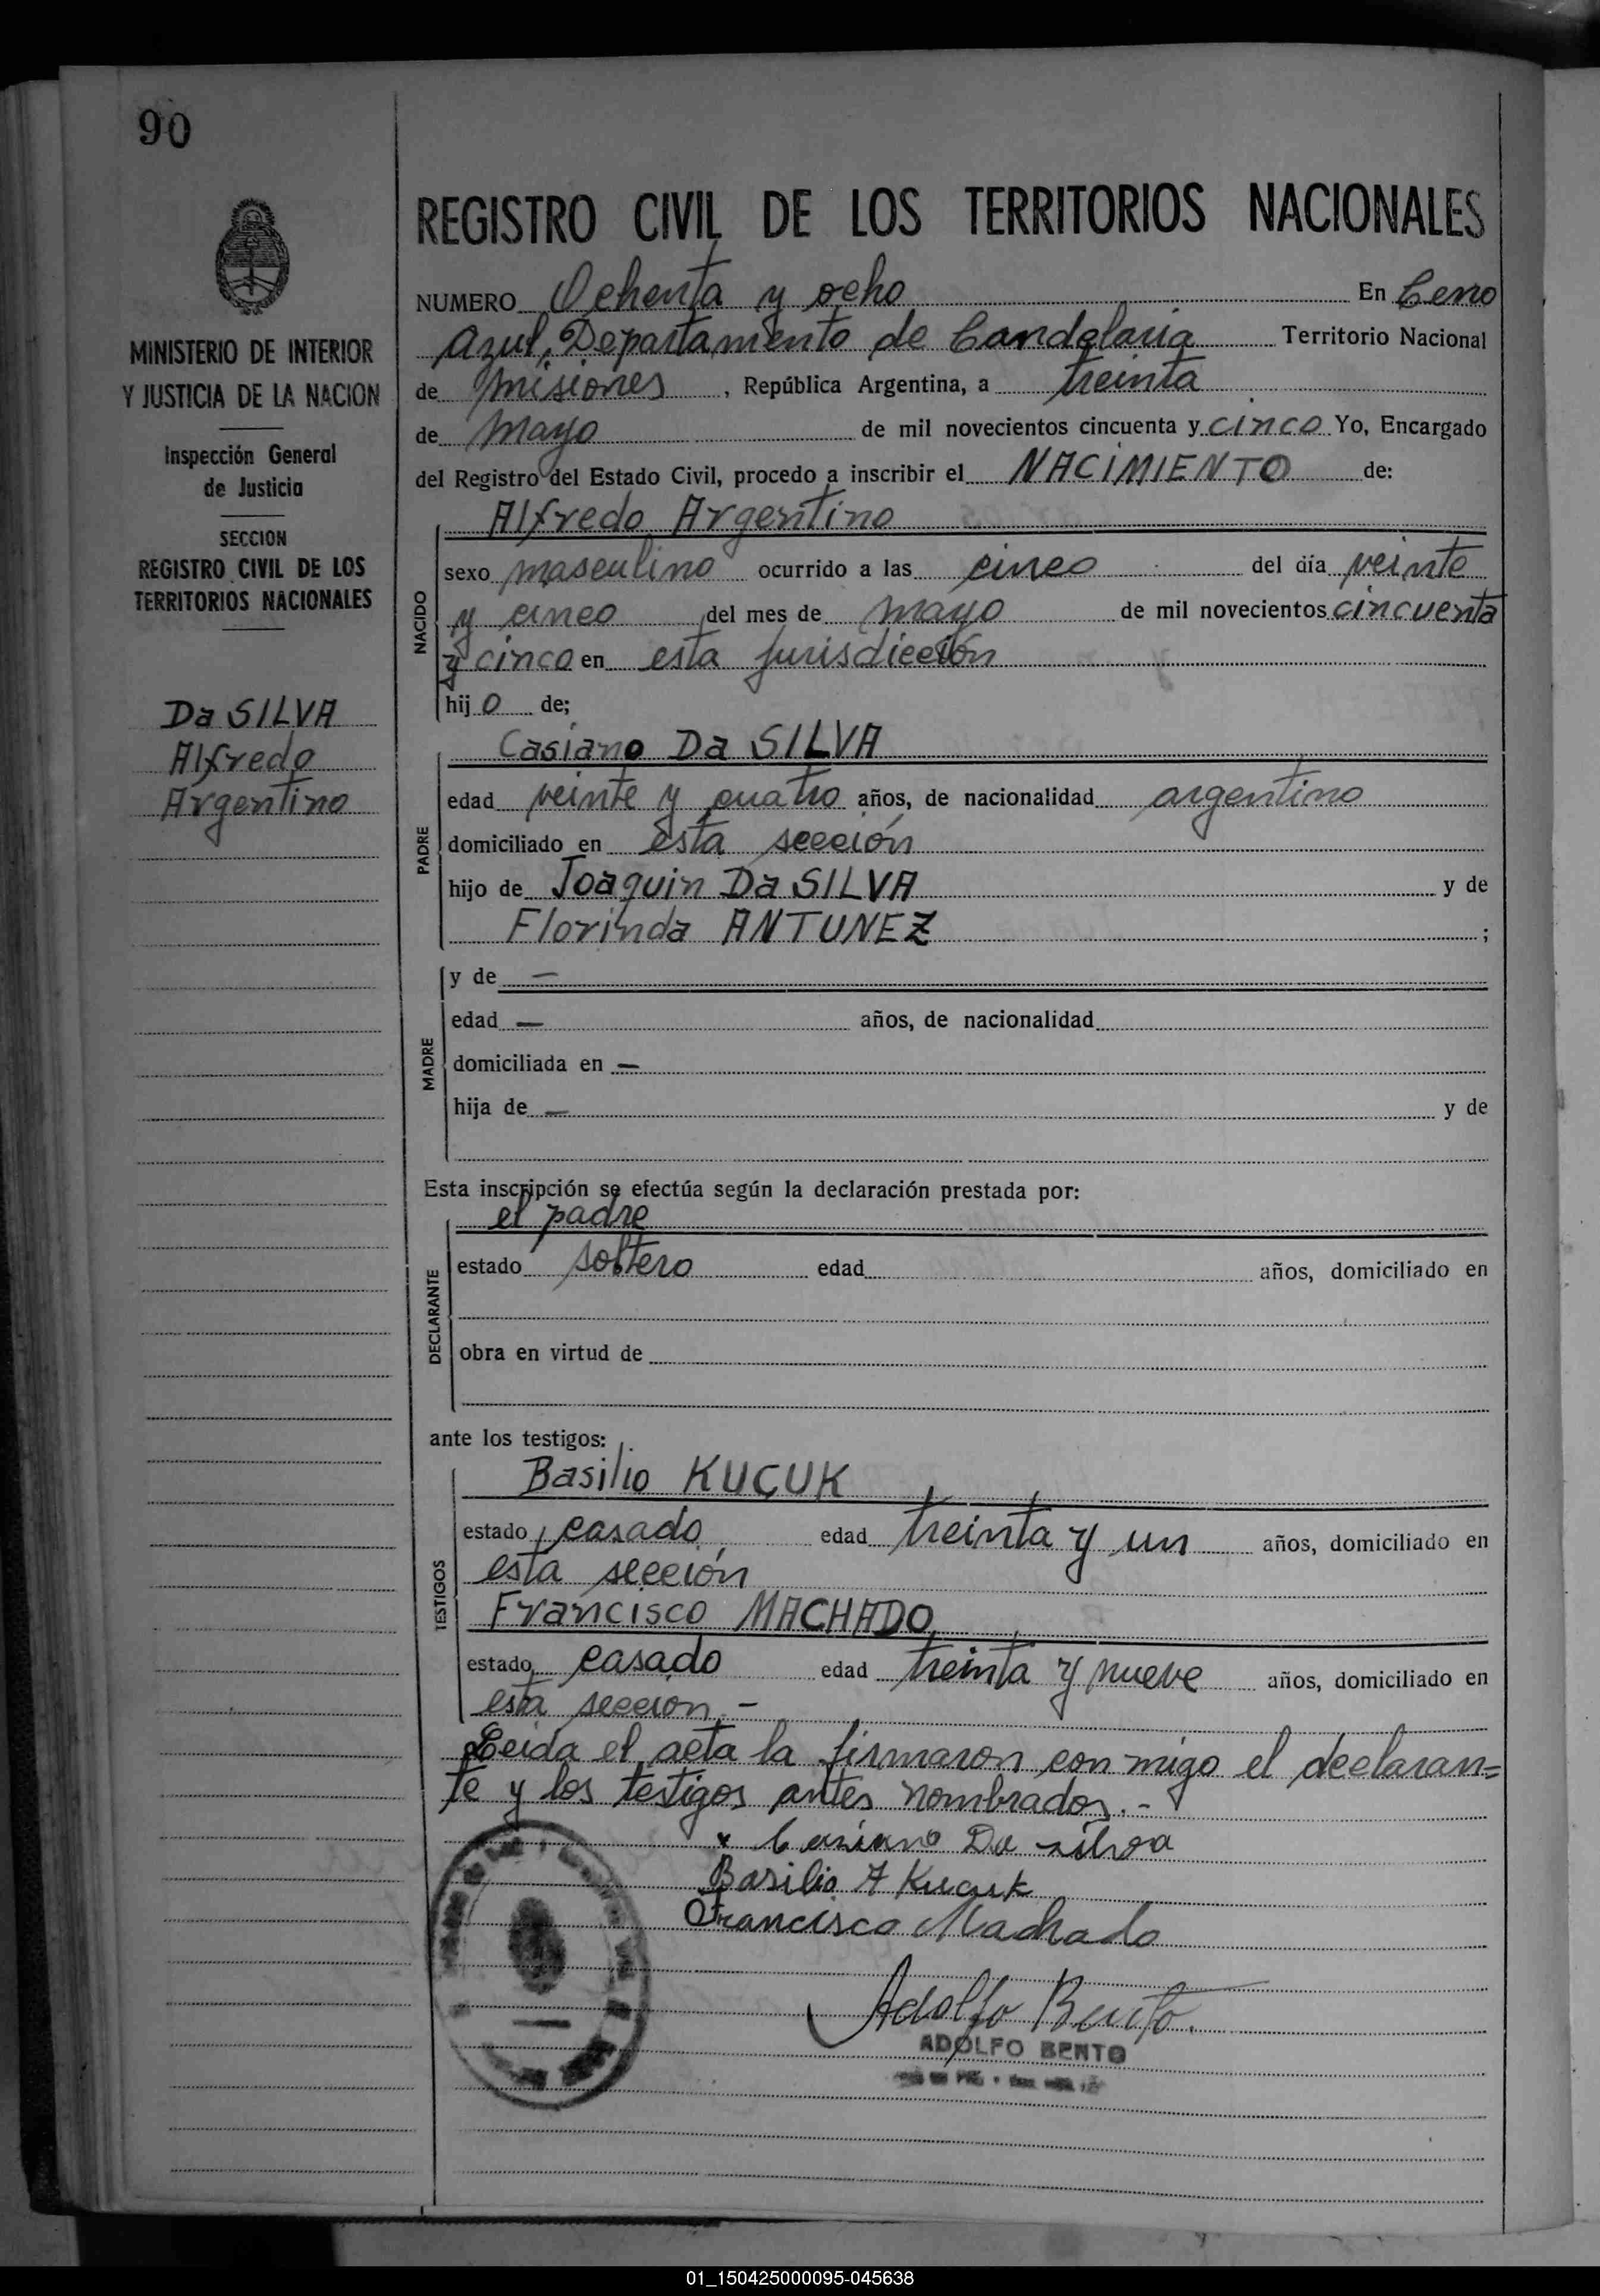 90
MINISTERIO DE INTERIOR
Y JUSTICIA DE LA NACION
Inspección General
de Justicia
SECCION
REGISTRO CIVIL DE LOS
TERRITORIOS NACIONALES
Da SILVA
Alfredo
Argentino
REGISTRO CIVIL DE LOS TERRITORIOS NACIONALES
NUMERO Ochenta y ocho En Cerro
Azul, Departamento de Candelaria Territorio Nacional
de Misiones, República Argentina, a treinta
de Mayo de mil novecientos cincuenta y cinco Yo, Encargado
del Registro del Estado Civil, procedo a inscribir el NACIMIENTO de:
Alfredo Argentino
NACIDO
sexo masculino ocurrido a las cinco del día veinte
y cinco del mes de mayo de mil novecientos cincuenta
y cinco en esta jurisdicción
hijo de;
Casiano Da SILVA
PADRE
edad veinte y cuatro años, de nacionalidad argentino
domiciliado en esta sección
hijo de Joaquin Da SILVA y de
Florinda ANTUNEZ ;
MADRE
y de —
edad — años, de nacionalidad
domiciliada en —
hija de — y de
Esta inscripción se efectúa según la declaración prestada por:
el padre
DECLARANTE
estado soltero edad años, domiciliado en
obra en virtud de
ante los testigos:
Basilio KUCUK
TESTIGOS
estado casado edad treinta y un años, domiciliado en
esta sección
Francisco MACHADO
estado casado edad treinta y nueve años, domiciliado en
esta sección.-
Leida el acta la firmaron con migo el declaran=
te y los testigos antes nombrados.-
x Casiano Da silva
Basilio A Kucuk
Francisco Machado
Adolfo Bento.
ADOLFO BENTO
01_150425000095-045638